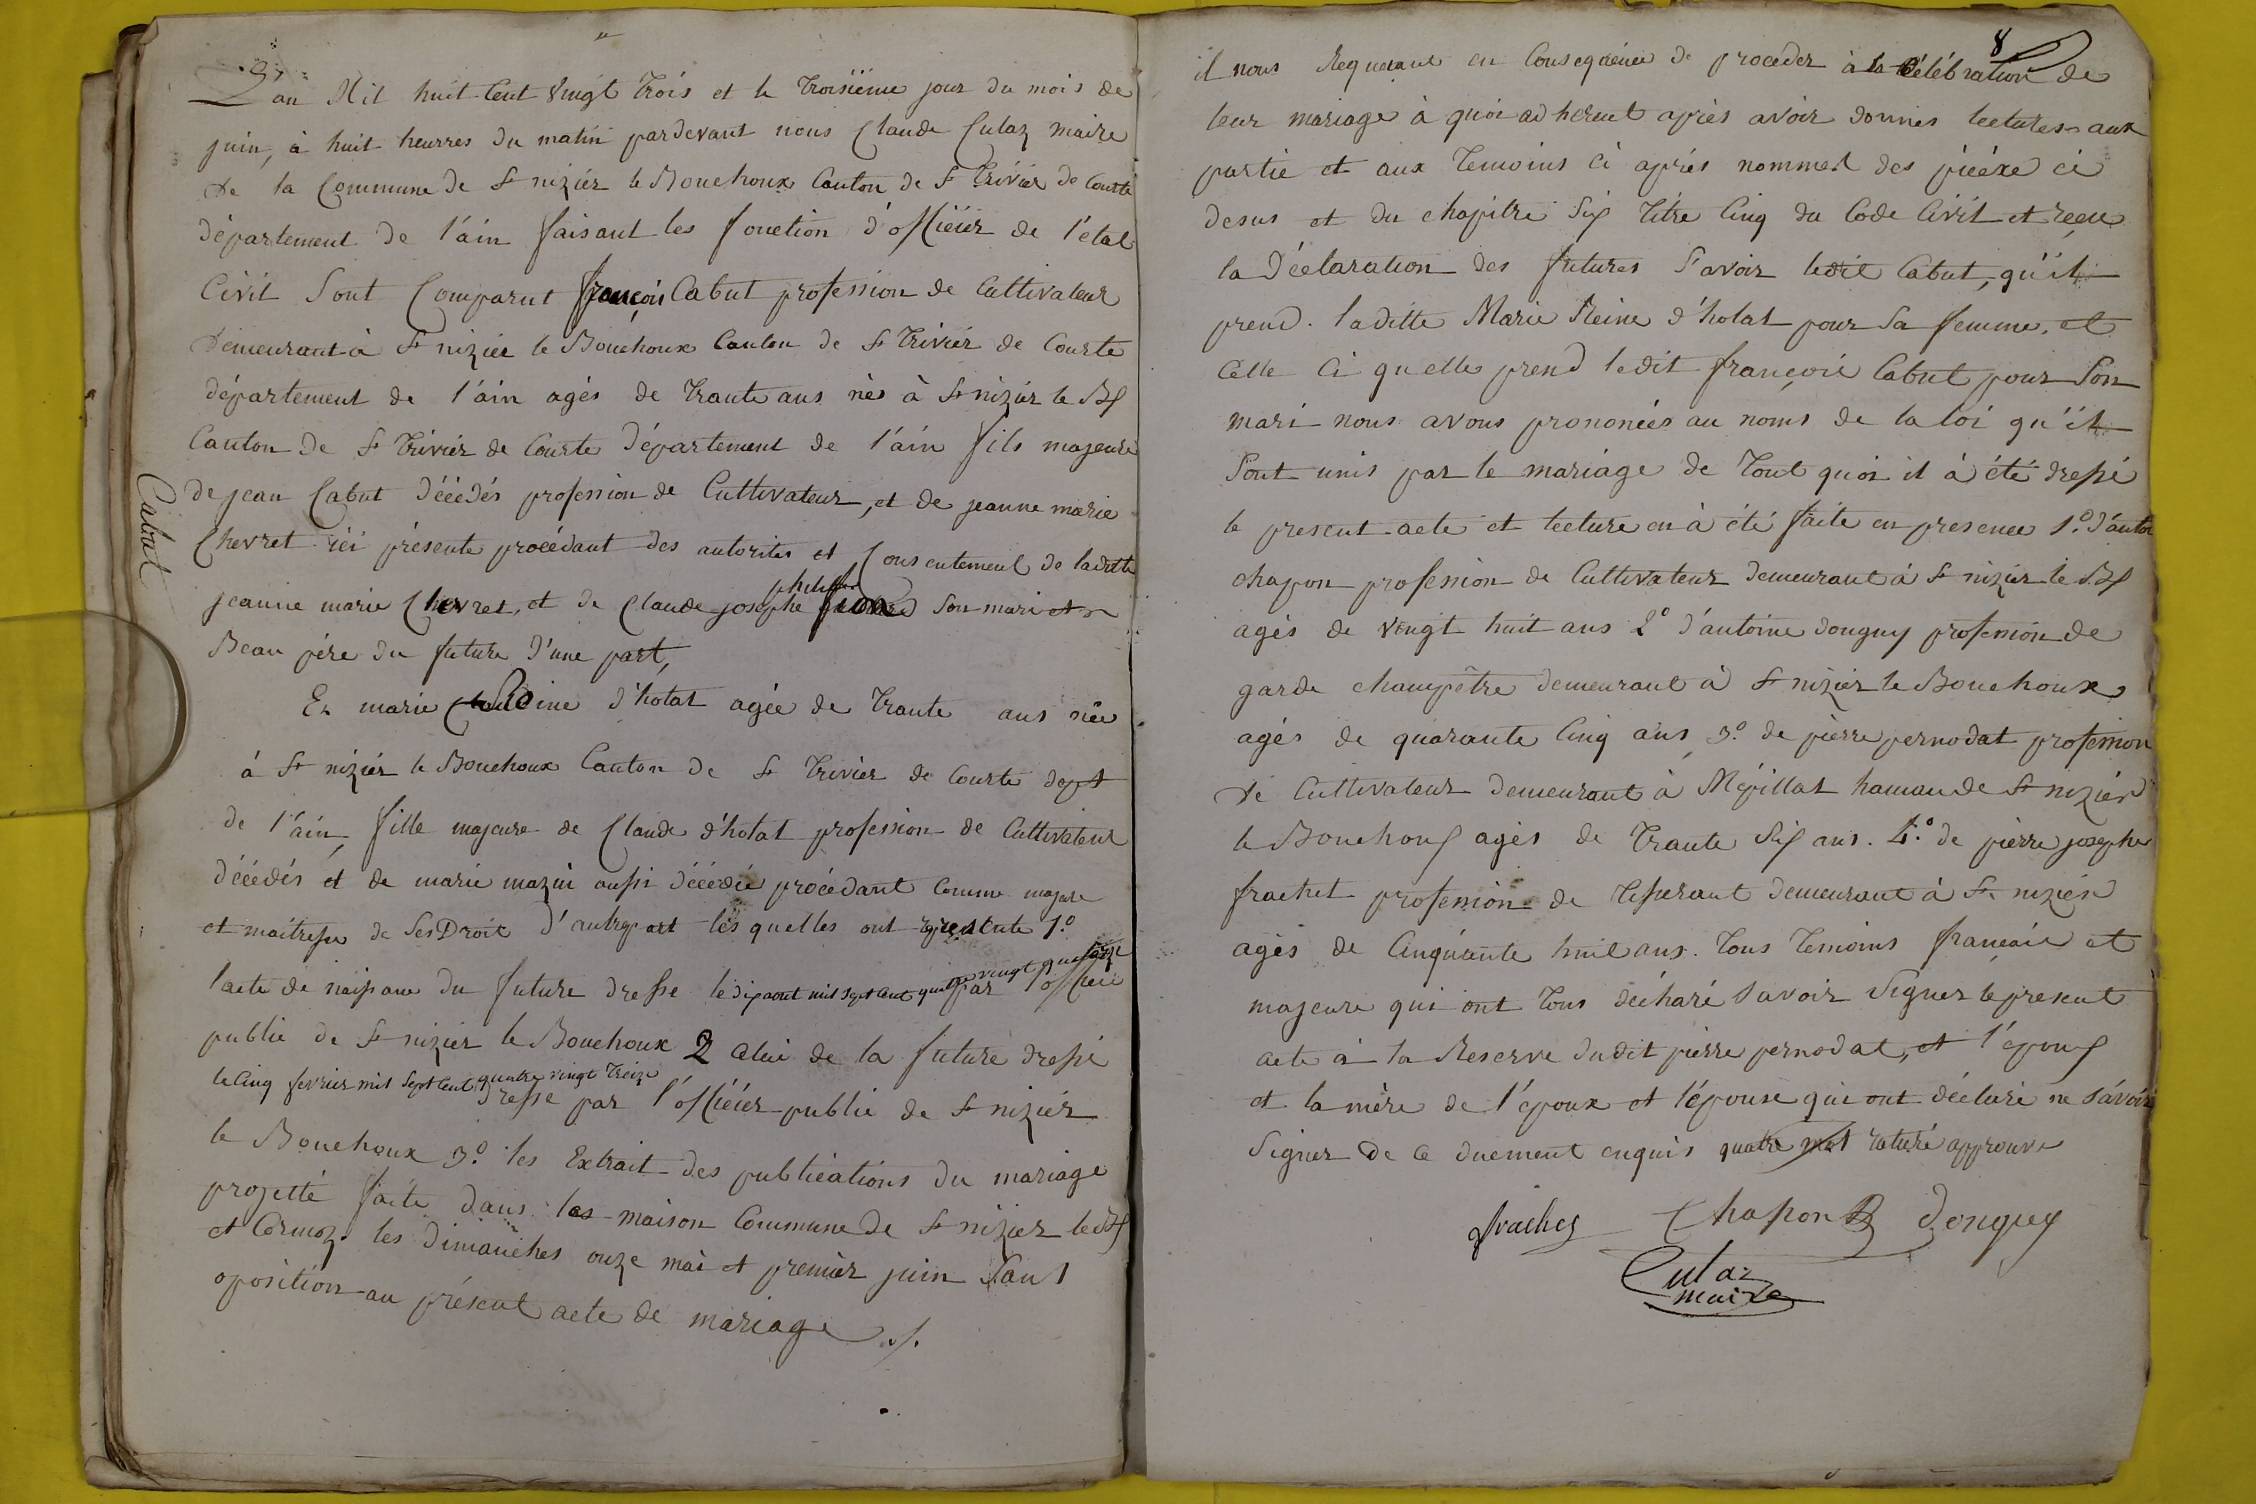 L'an Mil huit Cent Vingt trois et le troisiëme jour du mois de
juin, à huit heurres du matin pardevant nous Claude Culaz maire
de la Commune de St nizièr le Bouchoux Canton de St trivièr de Courte
département de l'ain faisant les fonction d'officiér de l'état
Civil Sont Comparut françois Cabut profession de Cultivateur
demeurant à St nizièr le Bouchoux Canton de St trivièr de Courte
département de l'ain agés de trante ans nès à St nizièr le Bx
Canton de St trivièr de Courte département de l'ain fils majeure
de jean Cabut décédés profession de Cultivateur, et de jeanne marie
Cabut
Chevret ici présente procédant des autorités et Consentement de laditte
jeanne marie Chevret, et de Claude josephe son mari et
Beau père du future d'une part,
Et marie d'holat agée de trante ans née
à St nizièr le Bouchoux Canton de St trivièr de Courte dept
de l'ain, fille majeure de Claude d'holat profession de Cultivateur
décédés et de marie mazui aussi décédée procédant Comme majure
et maitresse de Ses Droit d'autrepart lesquelles ont 1.o
l'acte de naissance du future dresse le dix aout mil sept Cent quatre vingt quatorze par l'officié
public de St nizièr le Bouchoux 2 Celui de la future dressé
le Cinq fevrier mil Sept Cent quatre vingt treize dressé par l'officiér public de St nizièr
le Bouchoux 3.o les Extrait des publications du mariage
projetté faite dans las maison Commune de St nizièr le Bx
et Cormoz les dimanches onze mai et premièr juin Sans
oposition au présent acte de mariage ./.
8
il nous Requerant en Consequénce de procéder à la Célébration de
leur mariage à quoi adherent après avoir donnés lectures aux
partie et aux temoins ci après nommés des pièéxe ci
desus et du chapitre Six titre Cinq du Code Civil et recu
la Déclaration des futures Savoir ledit Cabut, qu'il
prend. laditte Marie Reine d'holat pour Sa femme, et
Celle Ci quelle prend ledit françois Cabut pour Son
mari nous avons prononcés au noms de la loi qu'il
Sont unis par le mariage de tout quoi il à été dressé
le present acte et lecture en à été faite en presence 1.o d'antoi
chapon profession de Cultivateur demeurant à St nizièr le Bx
agés de vingt huit ans 2o d'antoine donguy profession de
garde champêtre demeurant à St nizièr le Bouchoux
agés de quarante Cinq ans 3.o de pièrre pernodat profession
de Cultivateur demeurant à Mépillat hamau de St nizièr
le Bouchoux agés de trante Six ans. 4.o de pièrre josephe
frachet profession de tisserant demeurant à St nizièr
agés de Cinquante huit ans. tous temoins francais et
majeure qui ont tous décharé Savoir Signer le present
acte à la Reserve dudit pièrre pernodat, et l'époux
et la mère de l'époux et l'épouse qui ont déclaré ne Savoir
Signer de Ce duement enquis quatre mot raturé approuve
frachet Chapon donguy
Culaz
maire